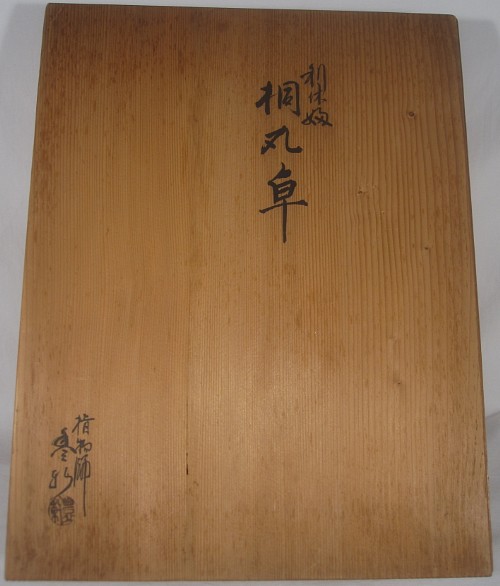 利休好
桐丸卓
指物師